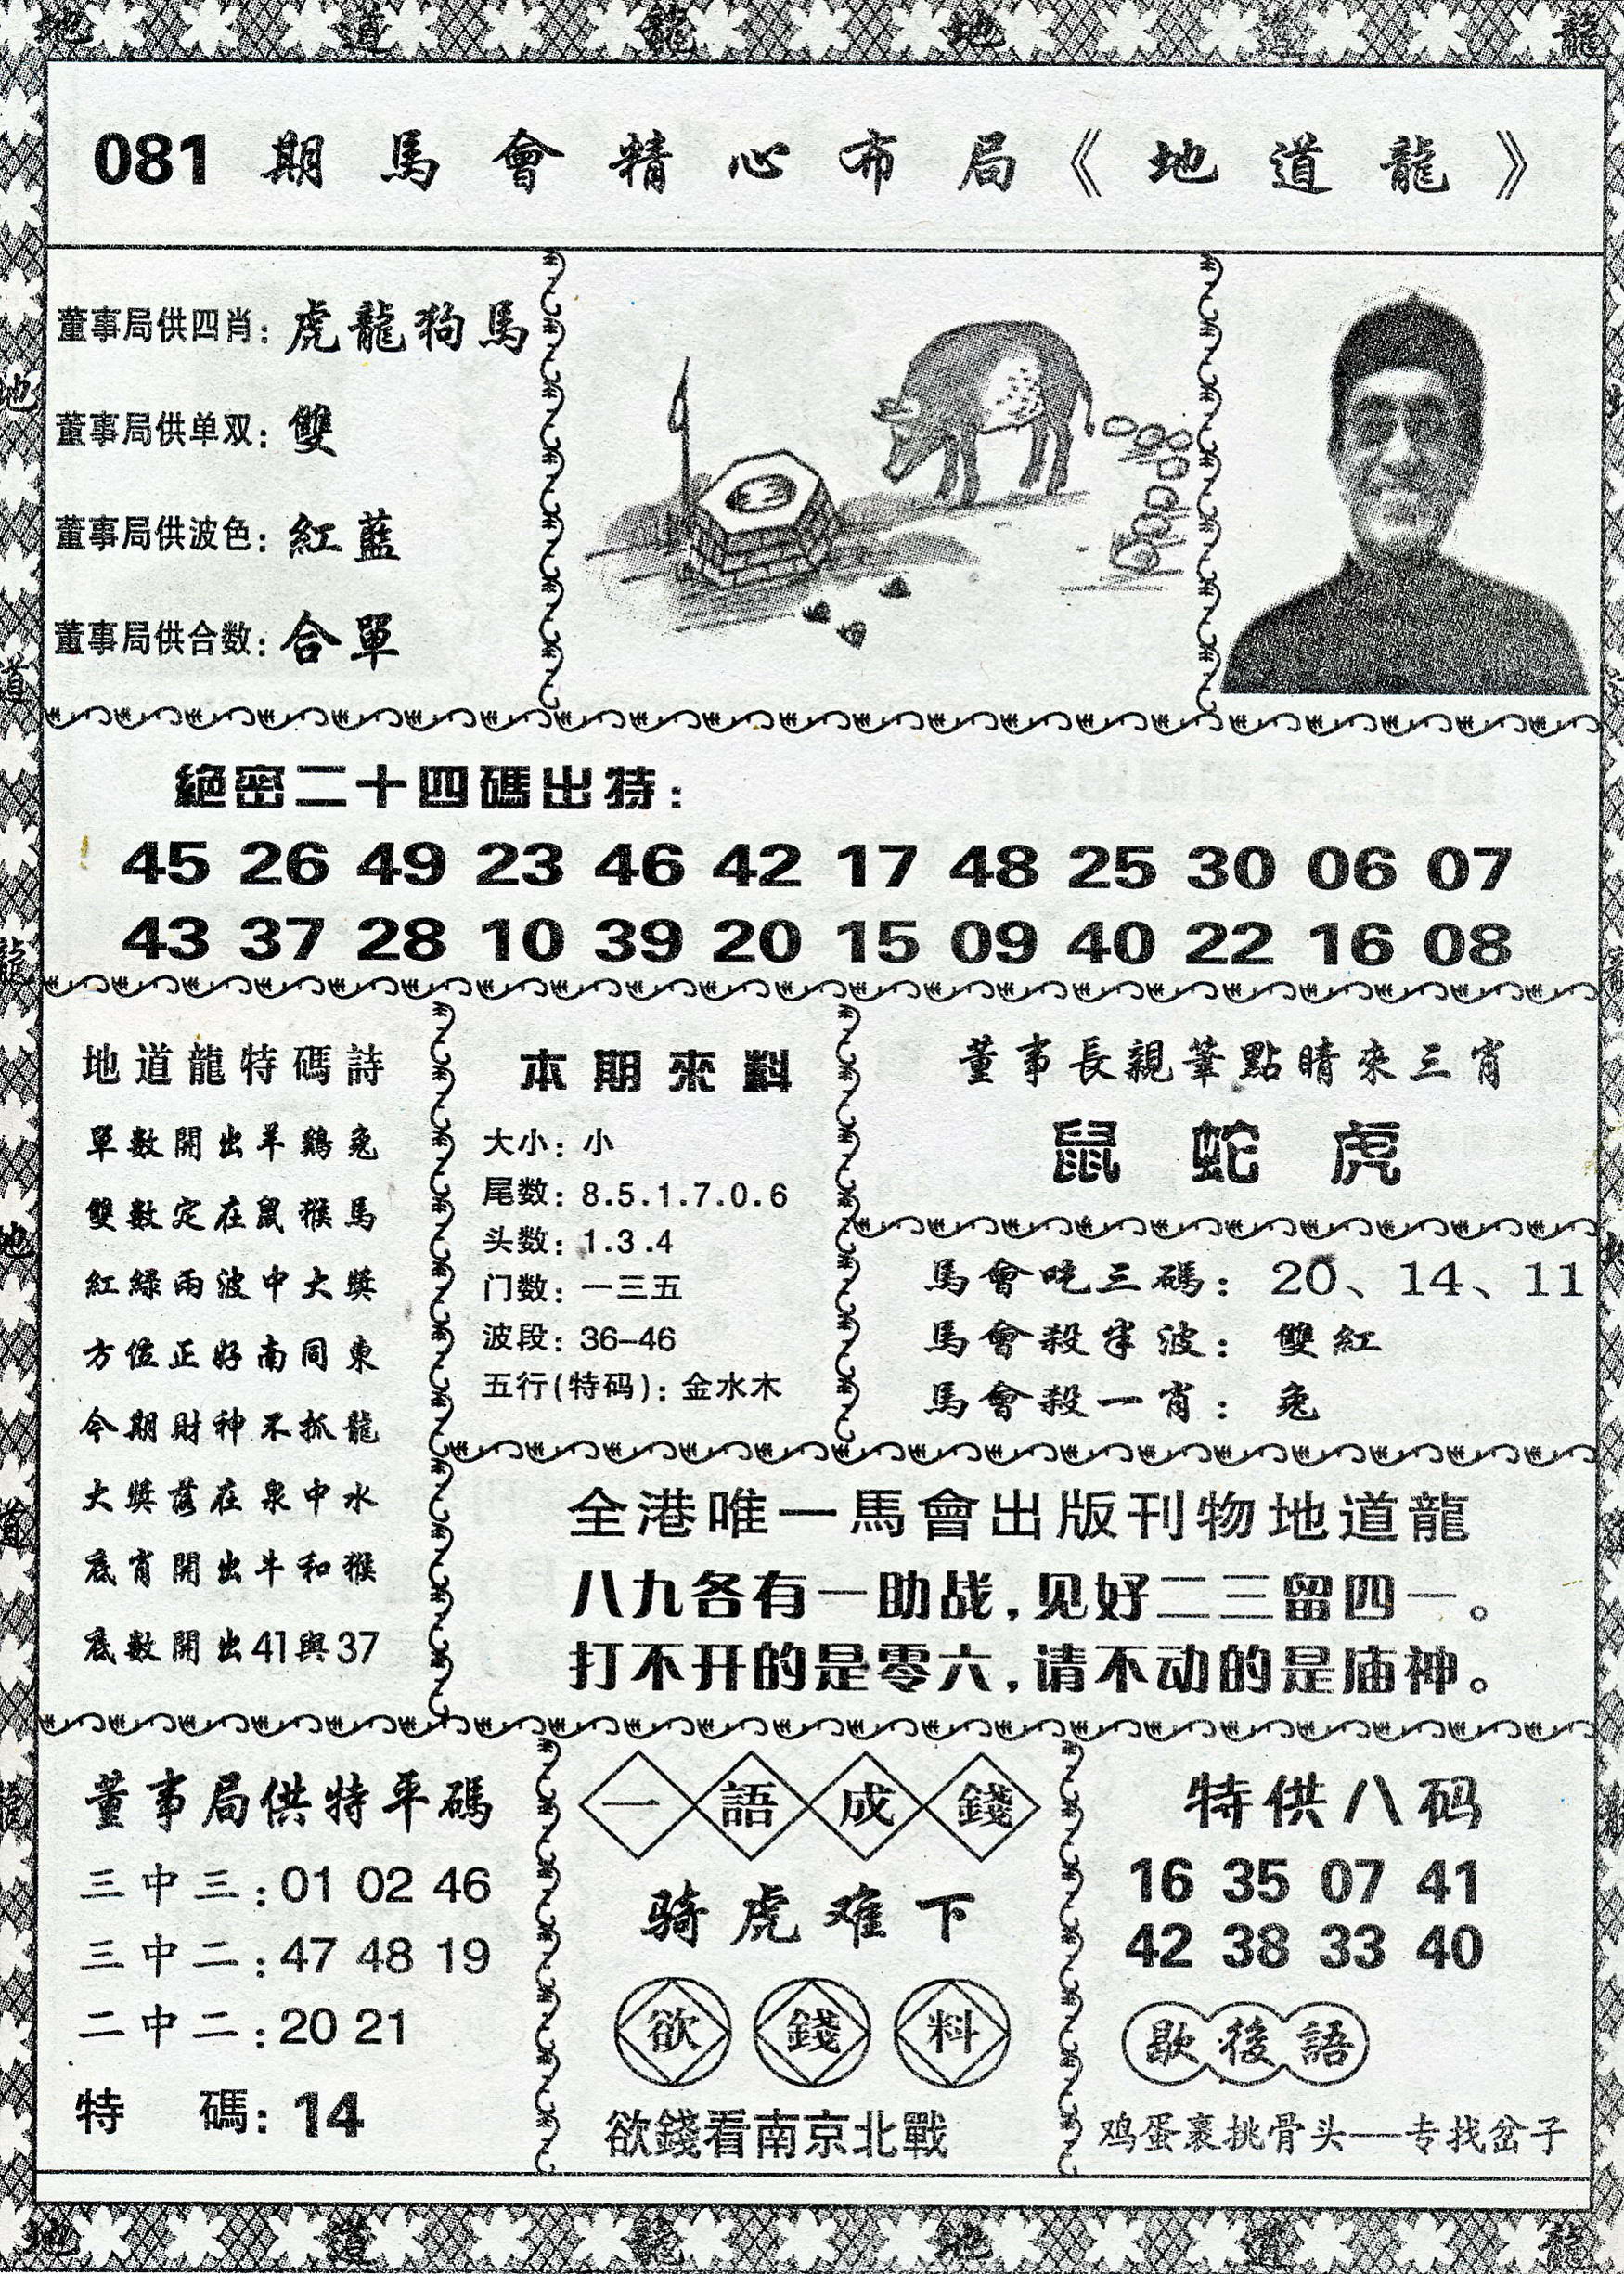 081 期馬會精心布局《地道龍》
董事局供四肖：虎龍狗馬
董事局供单双：雙
董事局供波色：紅藍
董事局供合数：合單
絕密二十四碼出特：
45 26 49 23 46 42 17 48 25 30 06 07
43 37 28 10 39 20 15 09 40 22 16 08
地道龍特碼詩
單數開出羊鷄兔
雙數定在鼠猴馬
紅綠兩波中大獎
方位正好南同東
今期財神不抓龍
大獎落在泉中水
底肖開出牛和猴
底數開出41與37
本期來料
大小：小
尾数：8.5.1.7.0.6
头数：1.3.4
门数：一三五
波段：36–46
五行(特码)：金水木
董事長親筆點睛來三肖
鼠 蛇 虎
馬會吃三碼：20、14、11
馬會殺半波：雙紅
馬會殺一肖：兔
全港唯一馬會出版刊物地道龍
八九各有一助战，见好二三留四一。
打不开的是零六，请不动的是庙神。
董事局供特平碼
三中三：01 02 46
三中二：47 48 19
二中二：20 21
特 碼：14
一語成錢
骑虎难下
欲錢料
欲錢看南京北戰
特供八码
16 35 07 41
42 38 33 40
歇後語
鸡蛋裹挑骨头——专找岔子
地 道 龍 地 道 龍